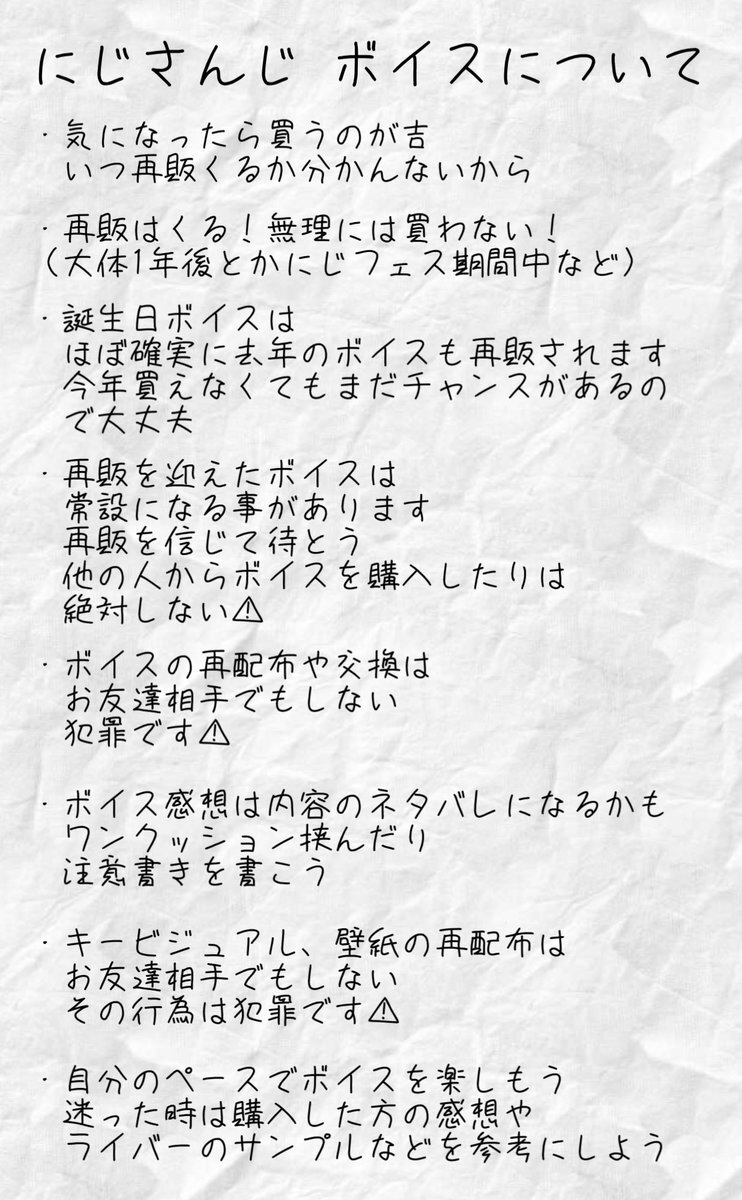 にじさんじ ボイスについて
・気になったら買うのが吉
いつ再販くるか分かんないから
・再販はくる！無理には買わない！
（大体1年後とかにじフェス期間中など）
・誕生日ボイスは
ほぼ確実に去年のボイスも再販されます
今年買えなくてもまだチャンスがあるの
で大丈夫
・再販を迎えたボイスは
常設になる事があります
再販を信じて待とう
他の人からボイスを購入したりは
絶対しない⚠
・ボイスの再配布や交換は
お友達相手でもしない
犯罪です⚠
・ボイス感想は内容のネタバレになるかも
ワンクッション挟んだり
注意書きを書こう
・キービジュアル、壁紙の再配布は
お友達相手でもしない
その行為は犯罪です⚠
・自分のペースでボイスを楽しもう
迷った時は購入した方の感想や
ライバーのサンプルなどを参考にしよう